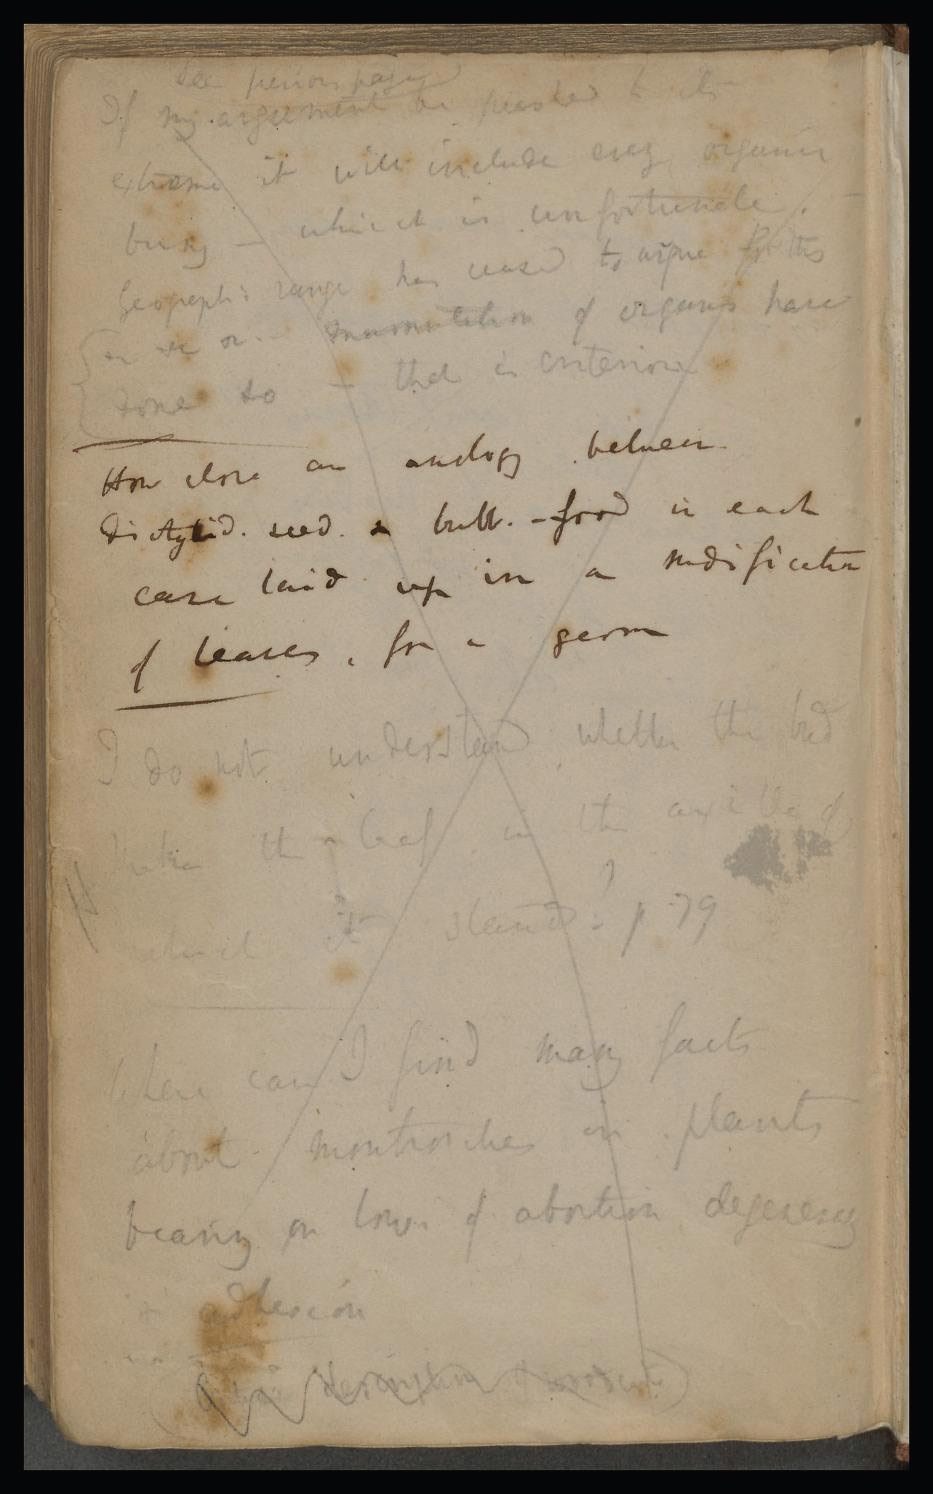 See previous page
If my argument be pushed to its
extreme it will include every organic
being — which is unfortunate. —
Geographic range has ceased to argue for this
on or transmutation of organs have
done so — that is criterion
How close an analogy between
dicotyled. seed. & bulb. — food in each
case laid up in a modification
of leaves, for a germ
I do not understand whether the bud
the leaf in the axilla of
which it stands? p. 79
Where can I find many facts
about monstrosities in plants
bearing on laws of abortion degeneracy
& adhesion